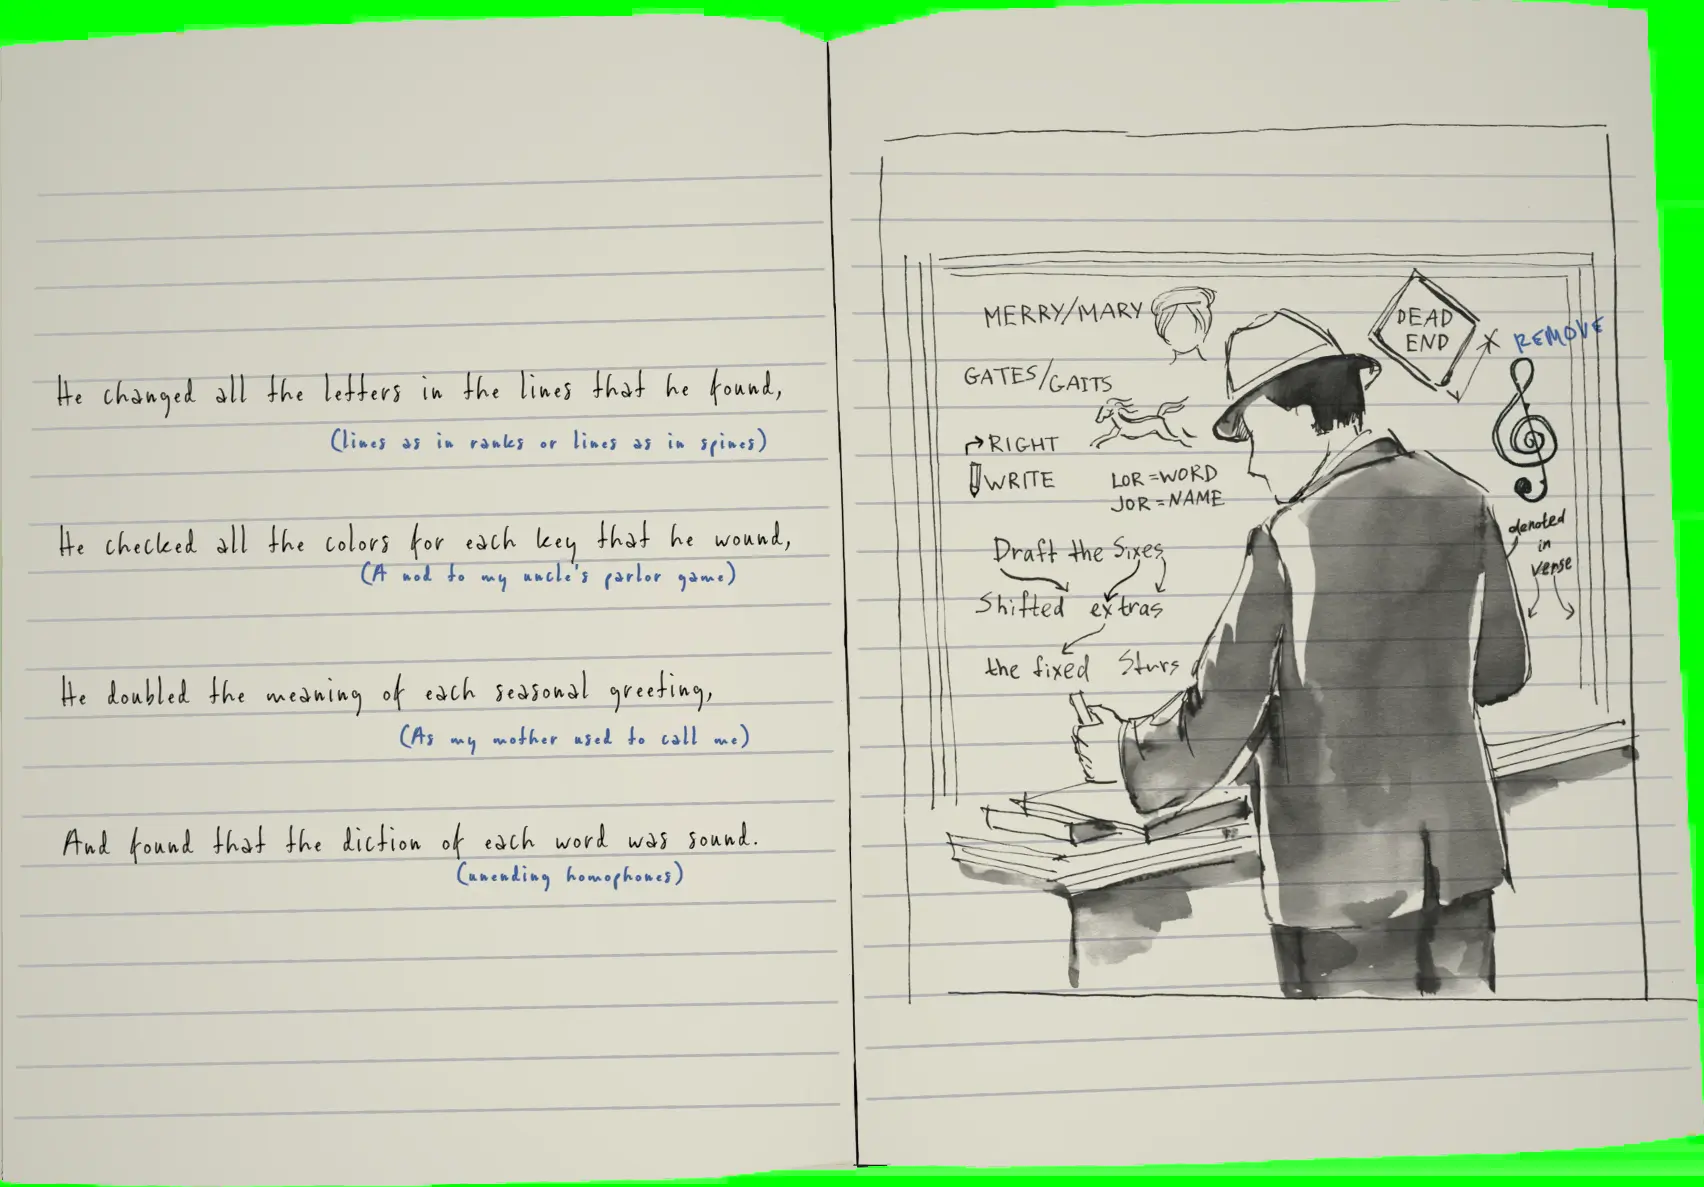 He changed all the letters in the lines that he found,
(lines as in ranks or lines as in spines)
He checked all the colors for each key that he wound,
(A nod to my uncle's parlor game)
He doubled the meaning of each seasonal greeting,
(As my mother used to call me)
And found that the diction of each word was sound.
(unending homophones)
MERRY/MARY
GATES/GAITS
RIGHT
WRITE
LOR=WORD
JOR=NAME
Draft the Sixes
Shifted extras
the fixed Stars
DEAD
END
REMOVE
denoted
in
verse